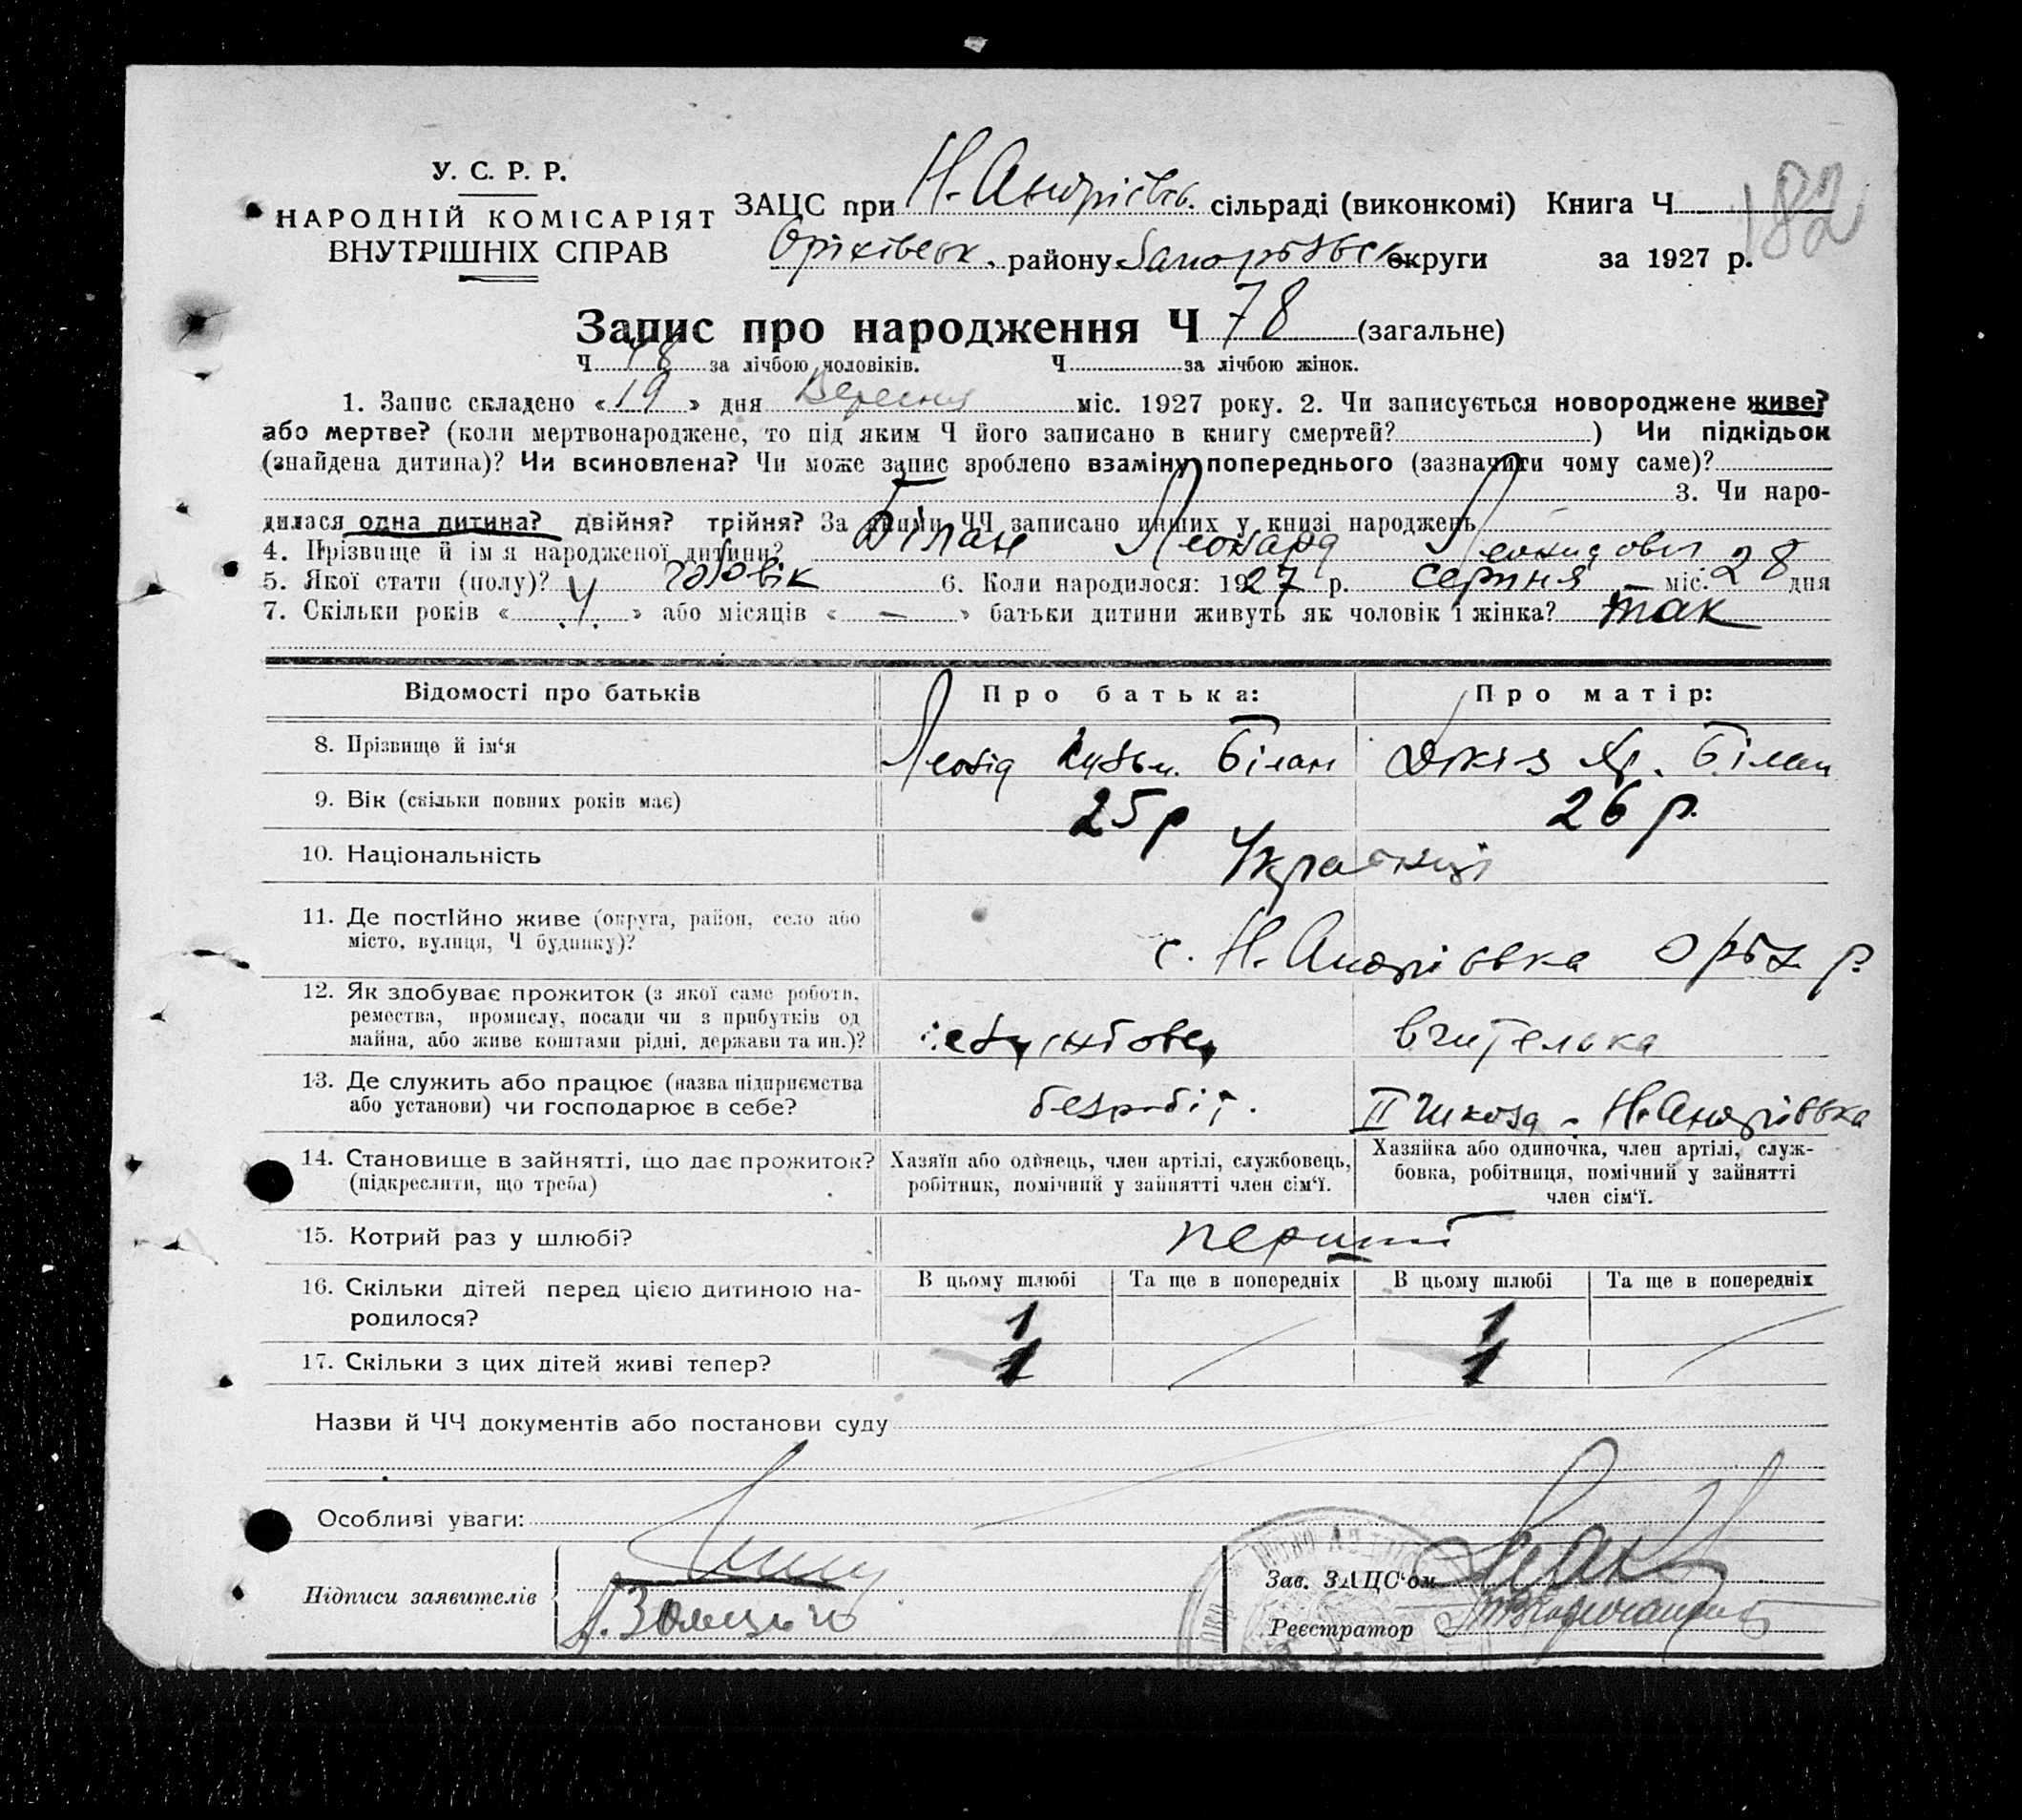 У. С. Р. Р.
НАРОДНІЙ КОМІСАРІЯТ
ВНУТРІШНІХ СПРАВ
ЗАЦС при Н. Андріївськ. сільраді (виконкомі) Книга Ч. 182
Оріхівськ. району Запорізськ округи за 1927 р.
Запис про народження Ч 78 (загальне)
Ч. 48 за лічбою чоловіків. Ч. за лічбою жінок.
1. Запис складено «19» дня Вересня міс. 1927 року. 2. Чи записується новороджене живе?
або мертве? (коли мертвонароджене, то під яким Ч його записано в книгу смертей? ) Чи підкідьок
(знайдена дитина)? Чи всиновлена? Чи може запис зроблено взаміну попереднього (зазначити чому саме)?
3. Чи наро-
дилася одна дитина? двійня? трійня? За якими ЧЧ записано инших у книзі народжень
4. Прізвище й ім'я народженої дитини? Білан Леонард Леонидович
5. Якої стати (полу)? Чоловік 6. Коли народилося: 1927 р. серпня міс. 28 дня
7. Скільки років «4» або місяців « — » батьки дитини живуть як чоловік і жінка? так
Відомості про батьків Про батька: Про матір:
8. Прізвище й ім'я Леонід Кузьм. Білан Білан
9. Вік (скільки повних років має) 25 р 26 р.
10. Національність Українці
11. Де постійно живе (округа, район, село або
місто, вулиця, Ч будинку)? с. Н. Андріівка Оріх р.
12. Як здобуває прожиток (з якої саме роботи,
ремества, промислу, посади чи з прибутків од
майна, або живе коштами рідні, держави та ин.)? вчителька
13. Де служить або працює (назва підприємства
або установи) чи господарює в себе? безробіт. II школа - Н. Андріівка
14. Становище в зайнятті, що дає прожиток?
(підкреслити, що треба)
Хазяїн або одинець, член артілі, службовець,
робітник, помічний у зайнятті член сім'ї.
Хазяйка або одиночка, член артілі, служ-
бовка, робітниця, помічний у зайнятті
член сім'ї.
15. Котрий раз у шлюбі? перший
В цьому шлюбі Та ще в попередніх В цьому шлюбі Та ще в попередніх
16. Скільки дітей перед цією дитиною на-
родилося? 1 1
17. Скільки з цих дітей живі тепер? 1 1
Назви й ЧЧ документів або постанови суду
Особливі уваги:
Підписи заявителів
Зав. ЗАЦС'ом
Реєстратор